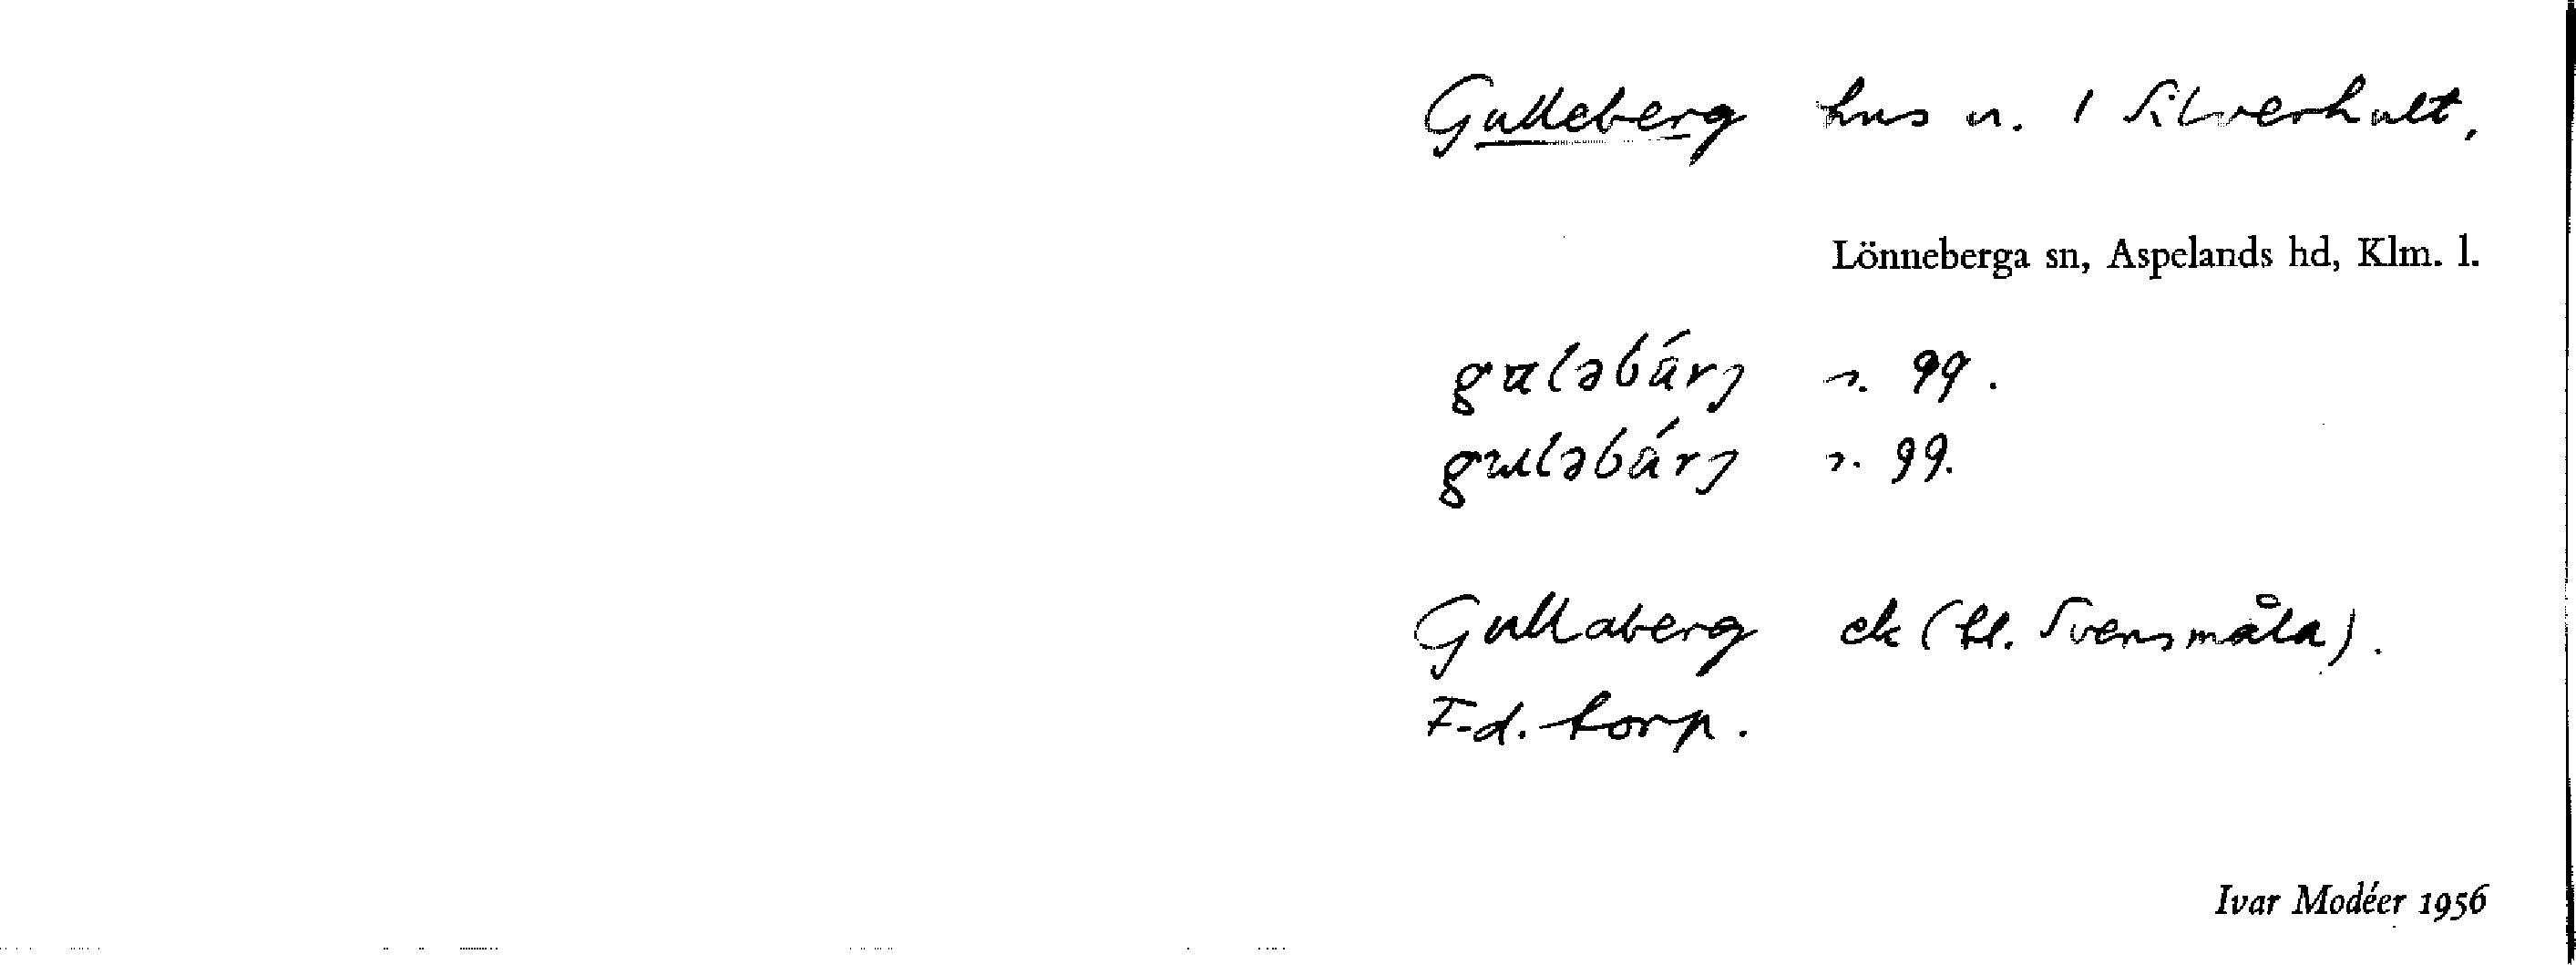 Gulleberg hus u. 1 Silverhult,
Lönneberga sn, Aspelands hd, Klm. l.
guləbárj s. 99.
guləbárj s. 99.
Gullaberg ek (bl. Svensmåla).
F.d. torp.
Ivar Modéer 1956